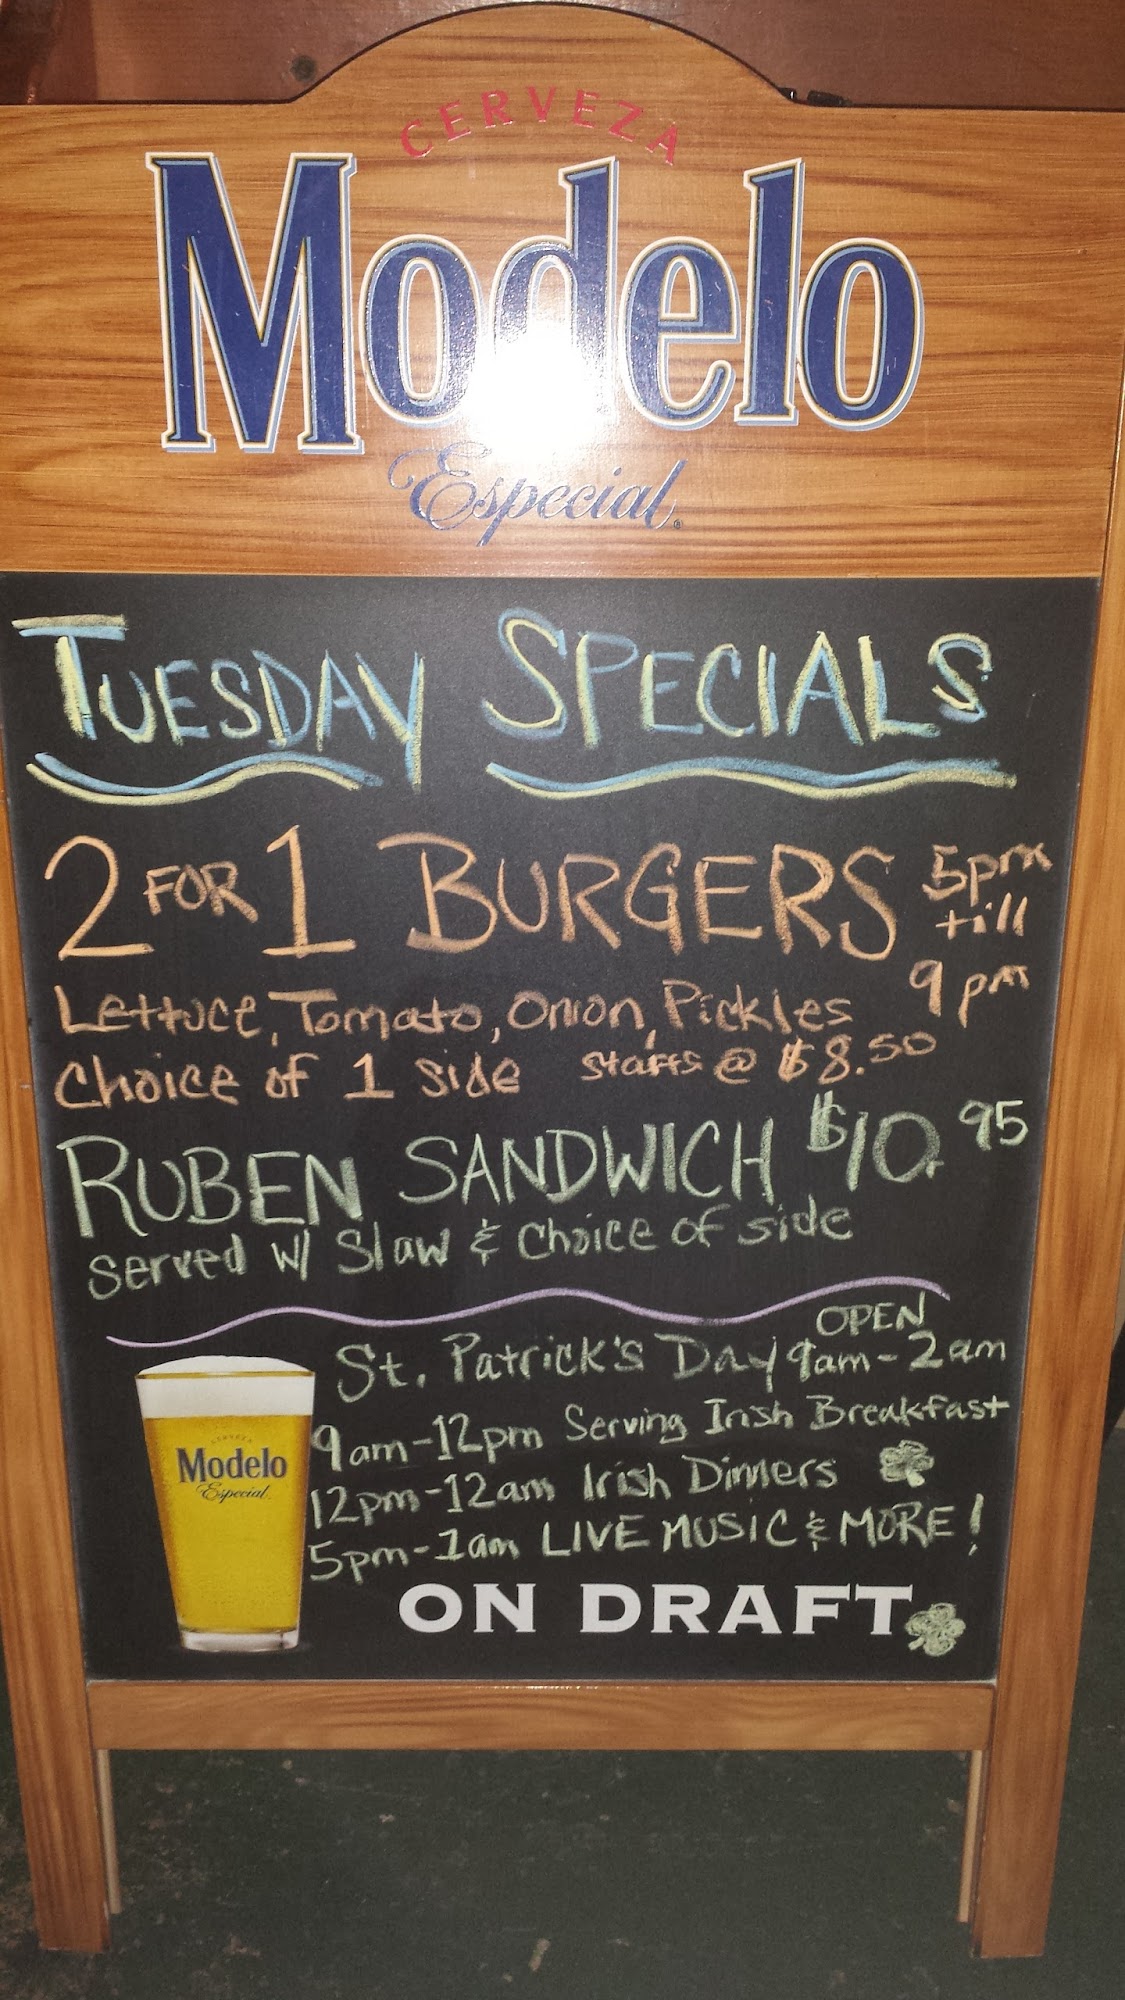 CERVEZA
Modelo
Especial
TUESDAY SPECIALS
2 FOR 1 BURGERS 5pm till 9pm
Lettuce, Tomato, Onion, Pickles
Choice of 1 side Starts @ $8.50
RUBEN SANDWICH $10.95
Served w/ Slaw & Choice of side
OPEN
St. Patrick's Day 9am-2am
9am-12pm Serving Irish Breakfast
12pm-12am Irish Dinners
5pm-1am LIVE MUSIC & MORE!
CERVEZA
Modelo
Especial
ON DRAFT